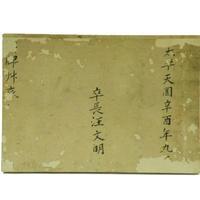 太平天囯辛酉年九
卒長汪文明